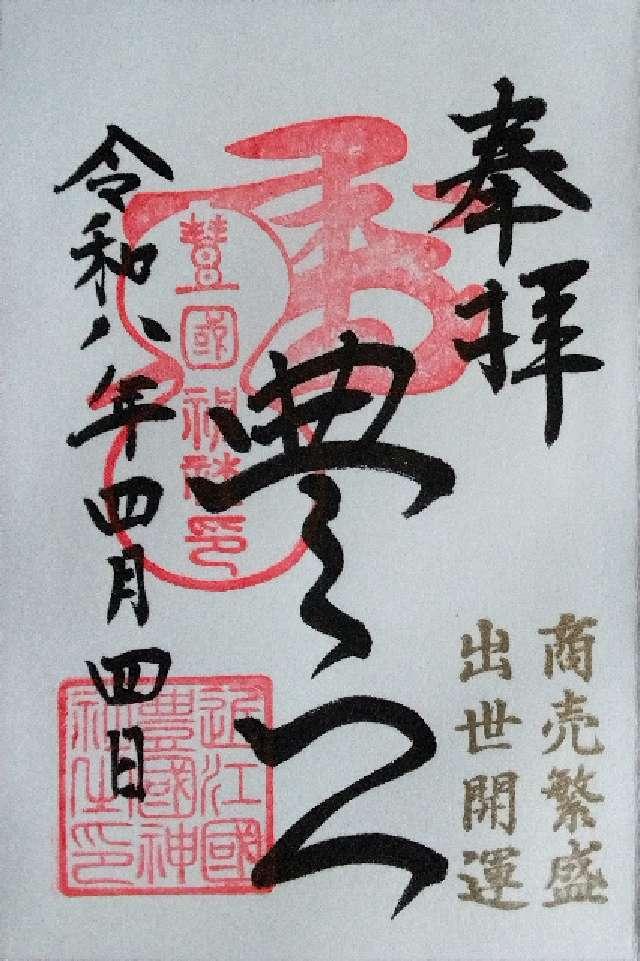 奉拝
商売繁盛
出世開運
豊公
豐國
令和八年四月四日
近江國
豊國神
社之印